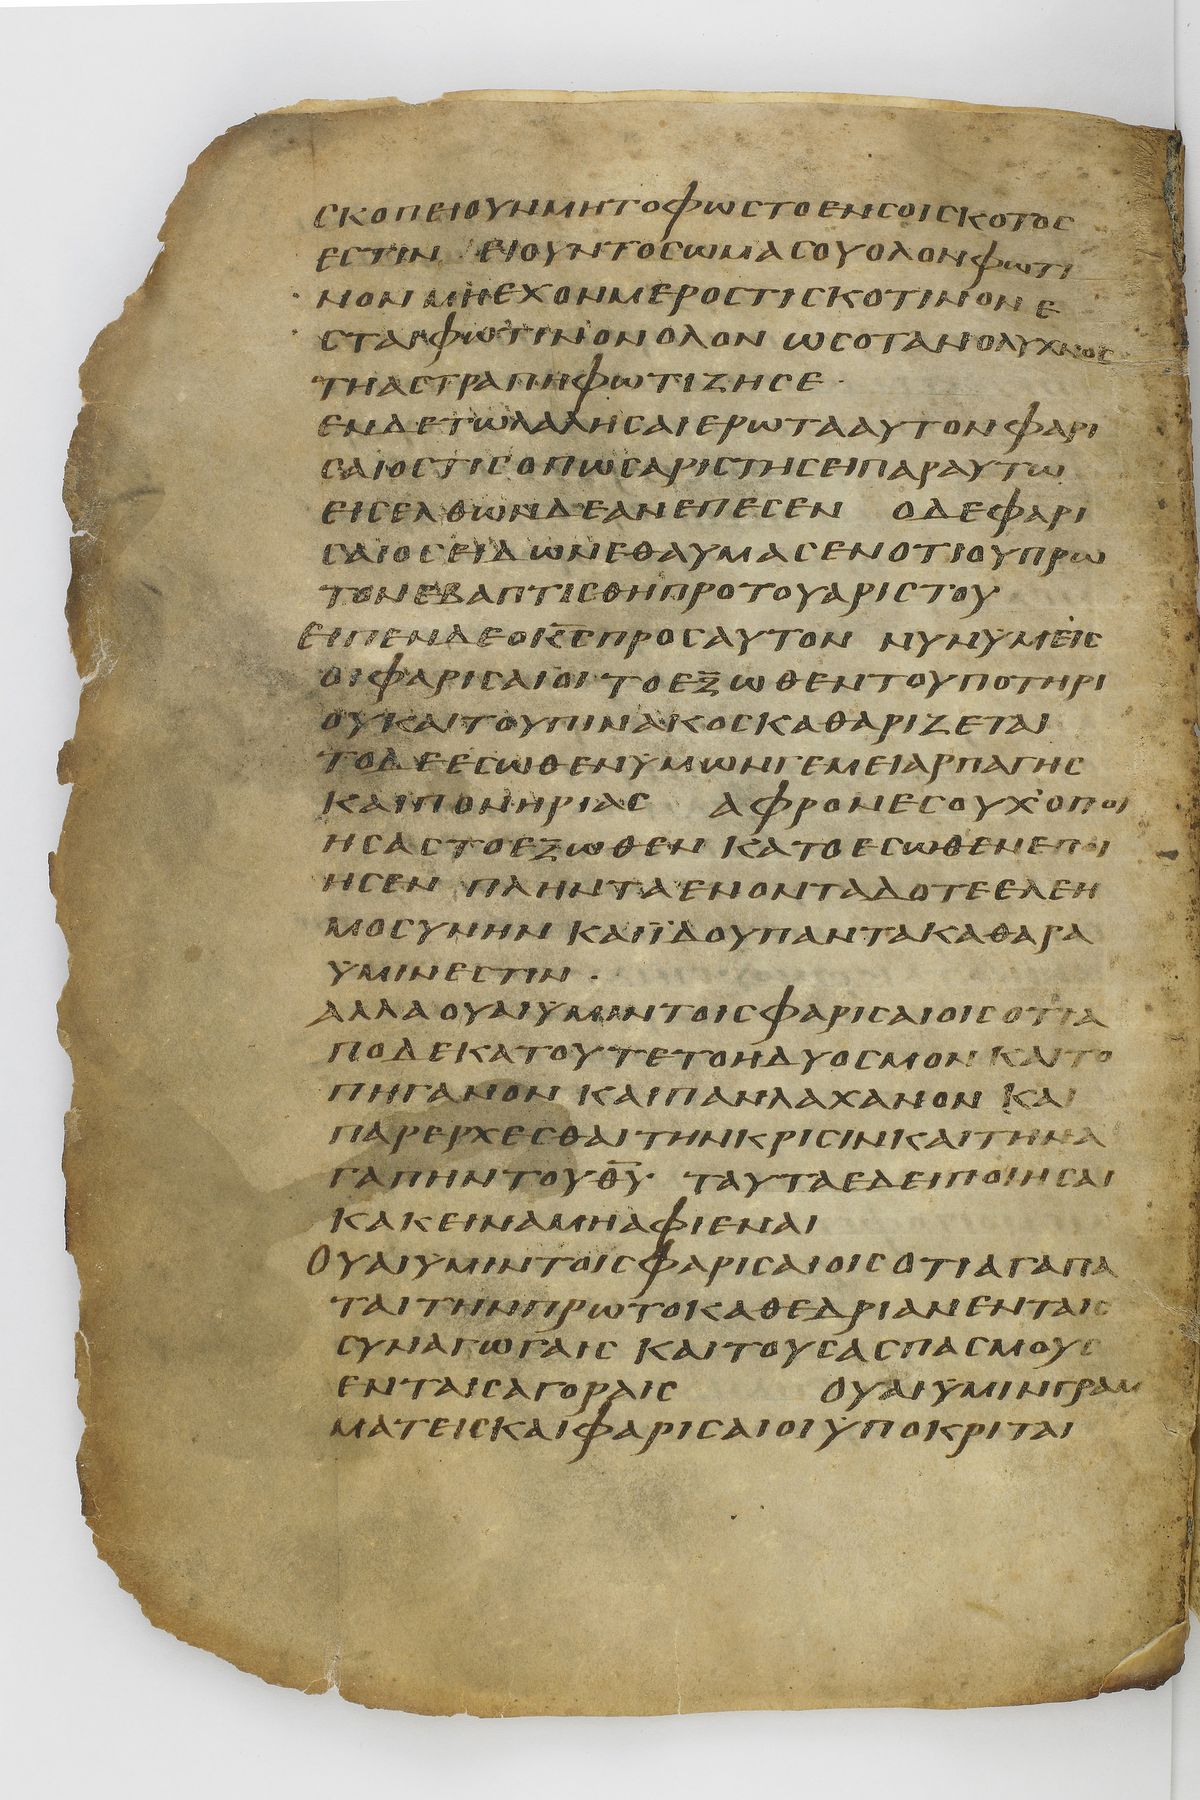 ϲκοπειουνμητοφωϲτοενϲοιϲκοτοϲ
εϲτιν ειουντοϲωμαϲουολονφωτι
νονμηεχονμεροϲτιϲκοτινονε
ϲταιφωτινονολον ωϲοτανολυχνοϲ
τηαϲτραπηφωτιζηϲε·
ενδετωλαληϲαιερωτααυτονφαρι
ϲαιοϲτιϲοπωϲαριϲτηϲειπαραυτω
ειϲελθωνδεανεπεϲεν οδεφαρι
ϲαιοϲειδωνεθαυμαϲενοτιουπρω
τονεβαπτιϲθηπροτουαριϲτου
ειπενδεοκ̅ϲ̅προϲαυτον νυνϋμειϲ
οιφαριϲαιοι τοεξωθεντουποτηρι
ουκαιτουπινακοϲκαθαριζεται
τοδεεϲωθενϋμωνγεμειαρπαγηϲ
καιπονηριαϲ αφρονεϲουχ᾽οποι
ηϲαϲτοεξωθεν κατοεϲωθενεποι
ηϲεν πληνταενονταδοτεελεη
μοϲυνην καιϊδουπαντακαθαρα
ϋμινεϲτιν·
αλλαουαιϋμιντοιϲφαριϲαιοιϲοτια
ποδεκατουτετοηδυοϲμονκαιτο
πηγανον καιπανλαχανον και
παρερχεϲθαιτηνκριϲινκαιτηνα
γαπηντουθ̅υ̅ ταυταεδειποιηϲαι
κακειναμηαφιεναι
ουαιϋμιντοιϲφαριϲαιοιϲοτιαγαπα
ταιτηνπρωτοκαθεδριανενταιϲ
ϲυναγωγαιϲ καιτουϲαϲπαϲμουϲ
ενταιϲαγοραιϲ ουαιϋμινγραμ
ματειϲκαιφαριϲαιοιϋποκριται